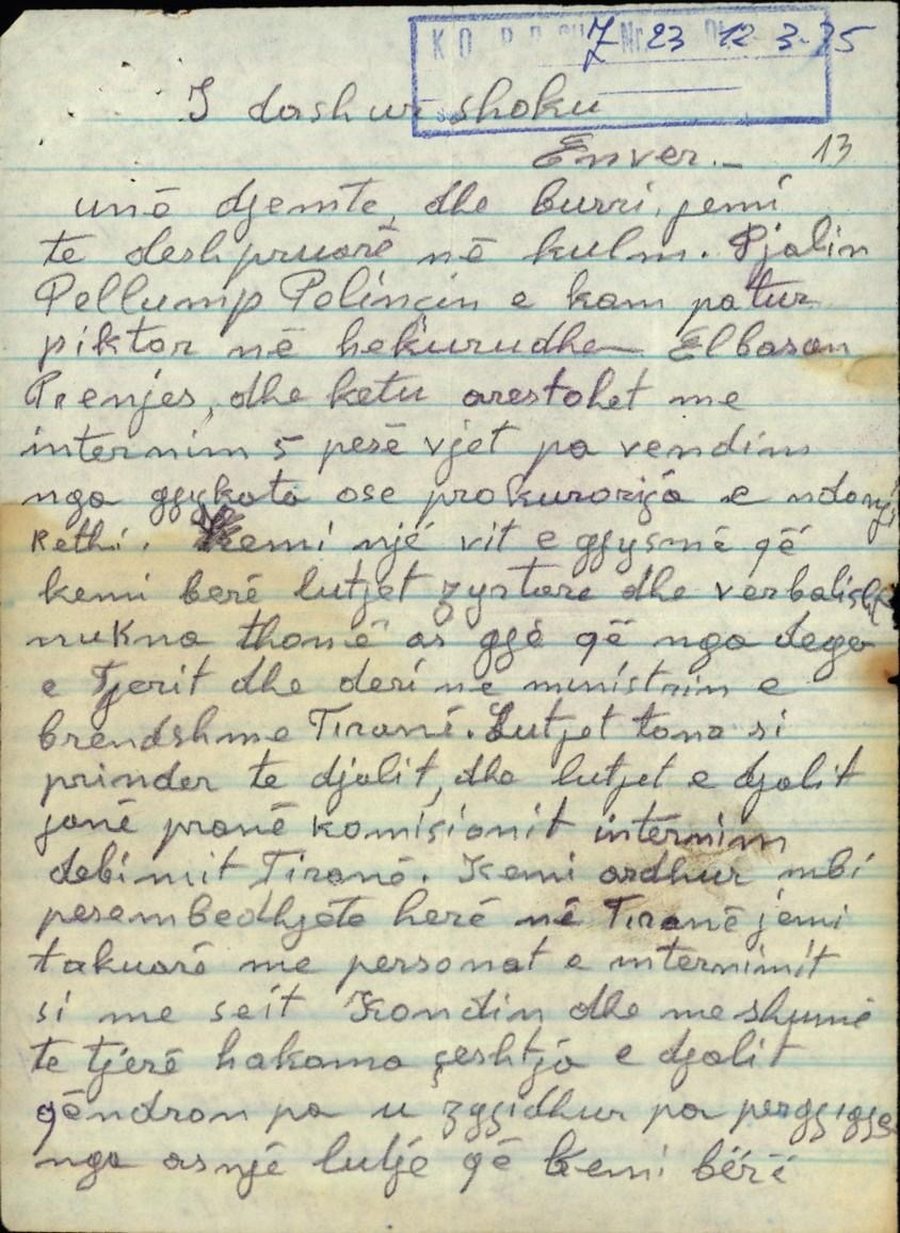 7 23 12 3-75
I dashur shoku
Enver._ 13
unë djemte, dhe burri, jemi
te deshpruarë në kulm. Djalin
Pellump Pelinçin e kam patur
piktor në hekurudhen Elbasan
Prenjes, dhe ketu arestohet me
internim 5 pesë vjet pa vendim
nga gjykata ose prokuroria e ndonji
Rethi. Kemi një vit e gjysmë që
kemi berë lutjet zyrtare dhe verbalisht
nukna thonë as gjë që nga dega
e Fjerit dhe deri ne ministrin e
brendshme Tiranë. Lutjet tona si
prinder te djalit, dhe lutjet e djalit
janë pranë komisionit internim
debimit Tiranë. Kemi ardhur mbi
pesembedhjete herë në Tiranë jemi
takuarë me personat e internimit
si me seit Kondin dhe me shumë
te tjerë hakoma çeshtja e djalit
qëndron pa u zgjidhur pa pergjigje
nga asnjë lutje që kemi bërë